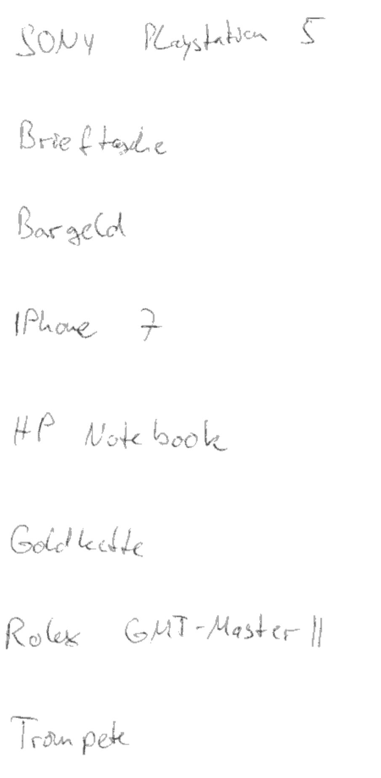 SONY Playstation 5
Brieftasche
Bargeld
IPhone 7
HP Notebook
Goldkette
Rolex GMT-Master II
Trompete